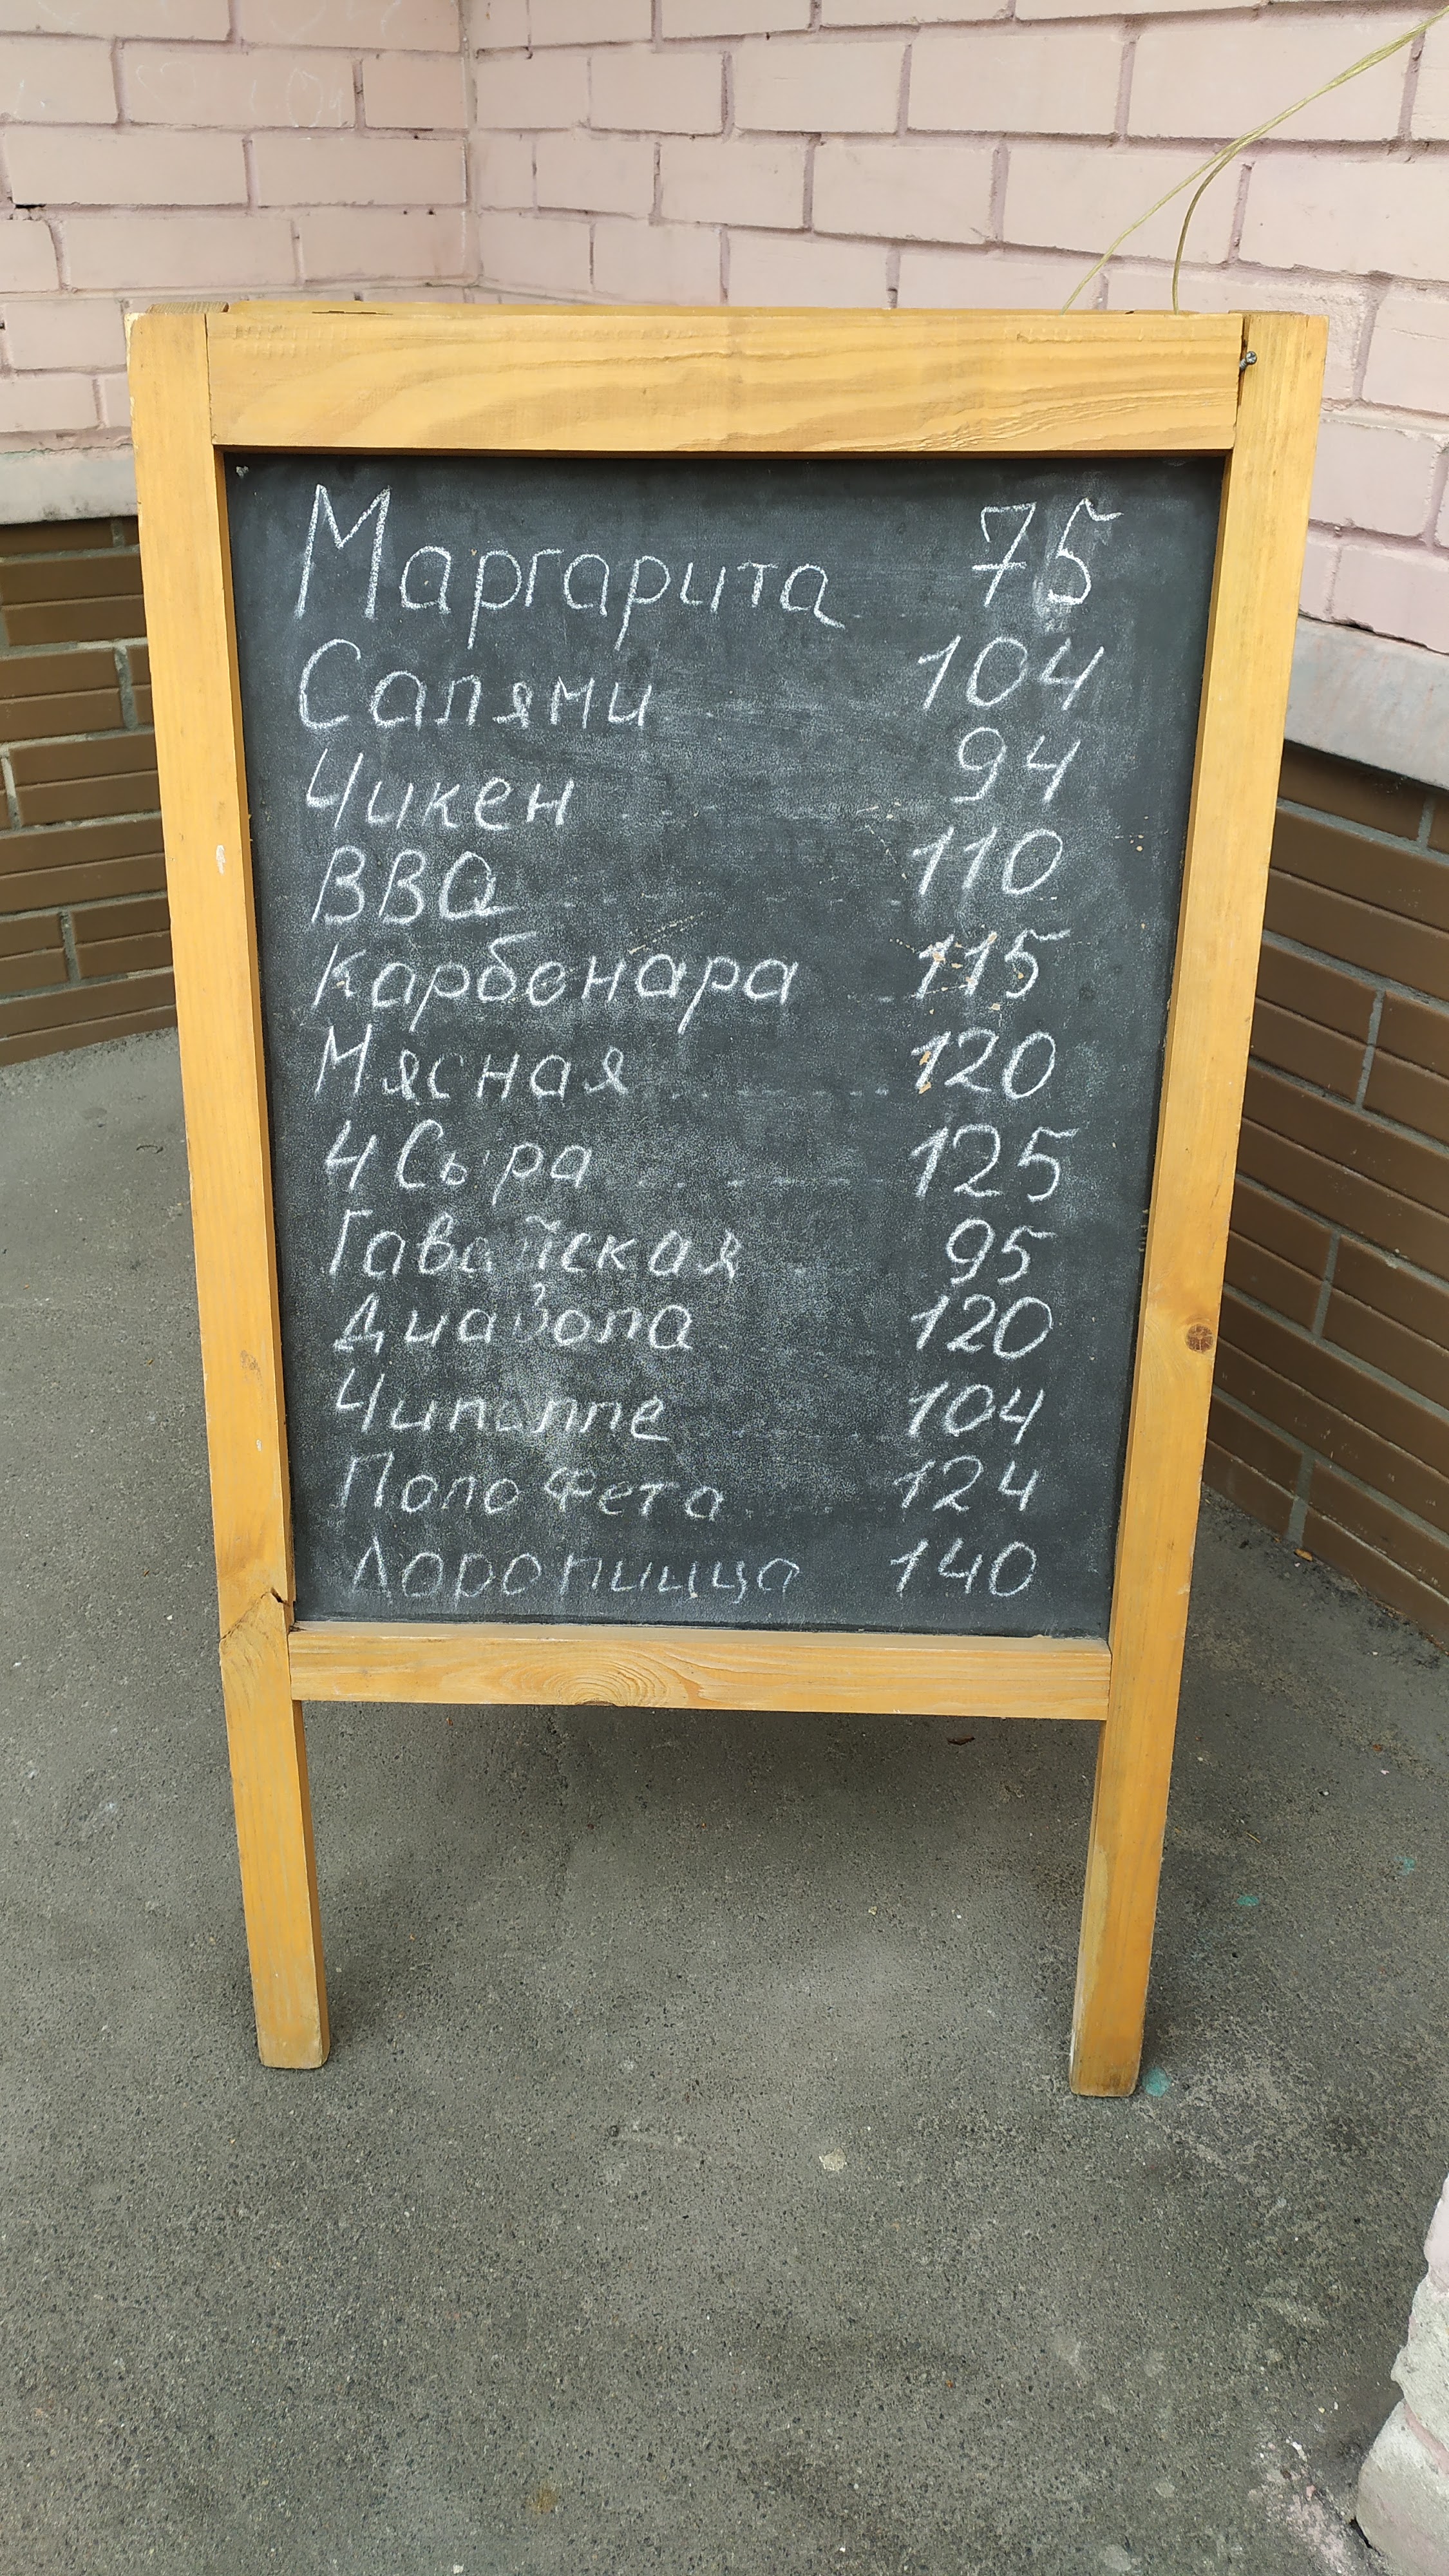 Маргарита 75
Салями 104
Чикен 94
BBQ 110
Карбенара 115
Мясная 120
4 Сыра 125
Гавайская 95
Диавола 120
Чиполле 104
Поло Фета 124
Лоропицца 140